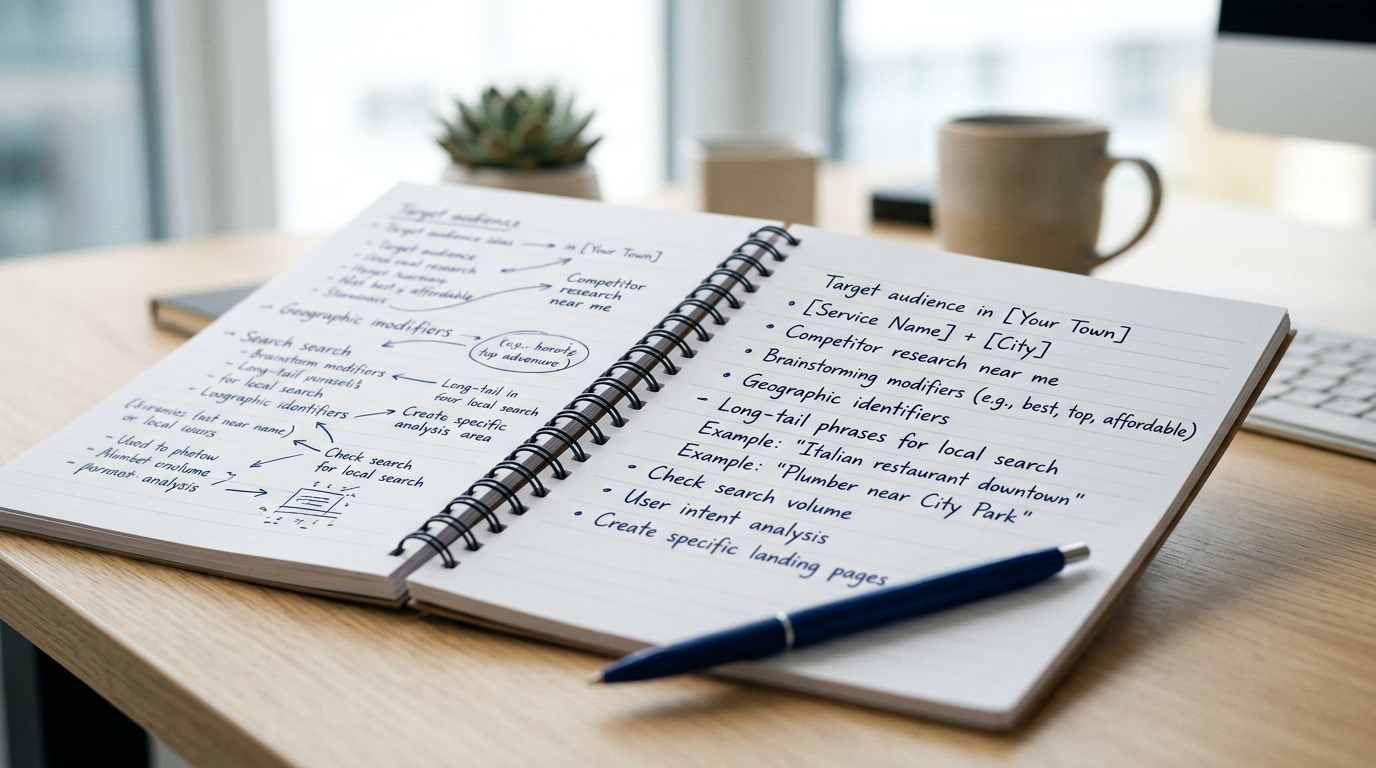 Target audience
- Target audience ideas → in [Your Town]
- Target audience
Competitor
research
near me
- best + affordable
→ Geographic modifiers
(e.g.,
top
→ Search search
- Brainstorm modifiers
- Long-tail
for local search
identifiers
Long-tail in
local search
Create specific
analysis area
near name)
or local
Check search
for local search
- Used to
analysis
Target audience in [Your Town]
• [Service Name] + [City]
• Competitor research near me
• Brainstorming modifiers (e.g., best, top, affordable)
• Geographic identifiers
- Long-tail phrases for local search
Example: "Italian restaurant downtown"
Example: "Plumber near City Park"
• Check search volume
• User intent analysis
• Create specific landing pages